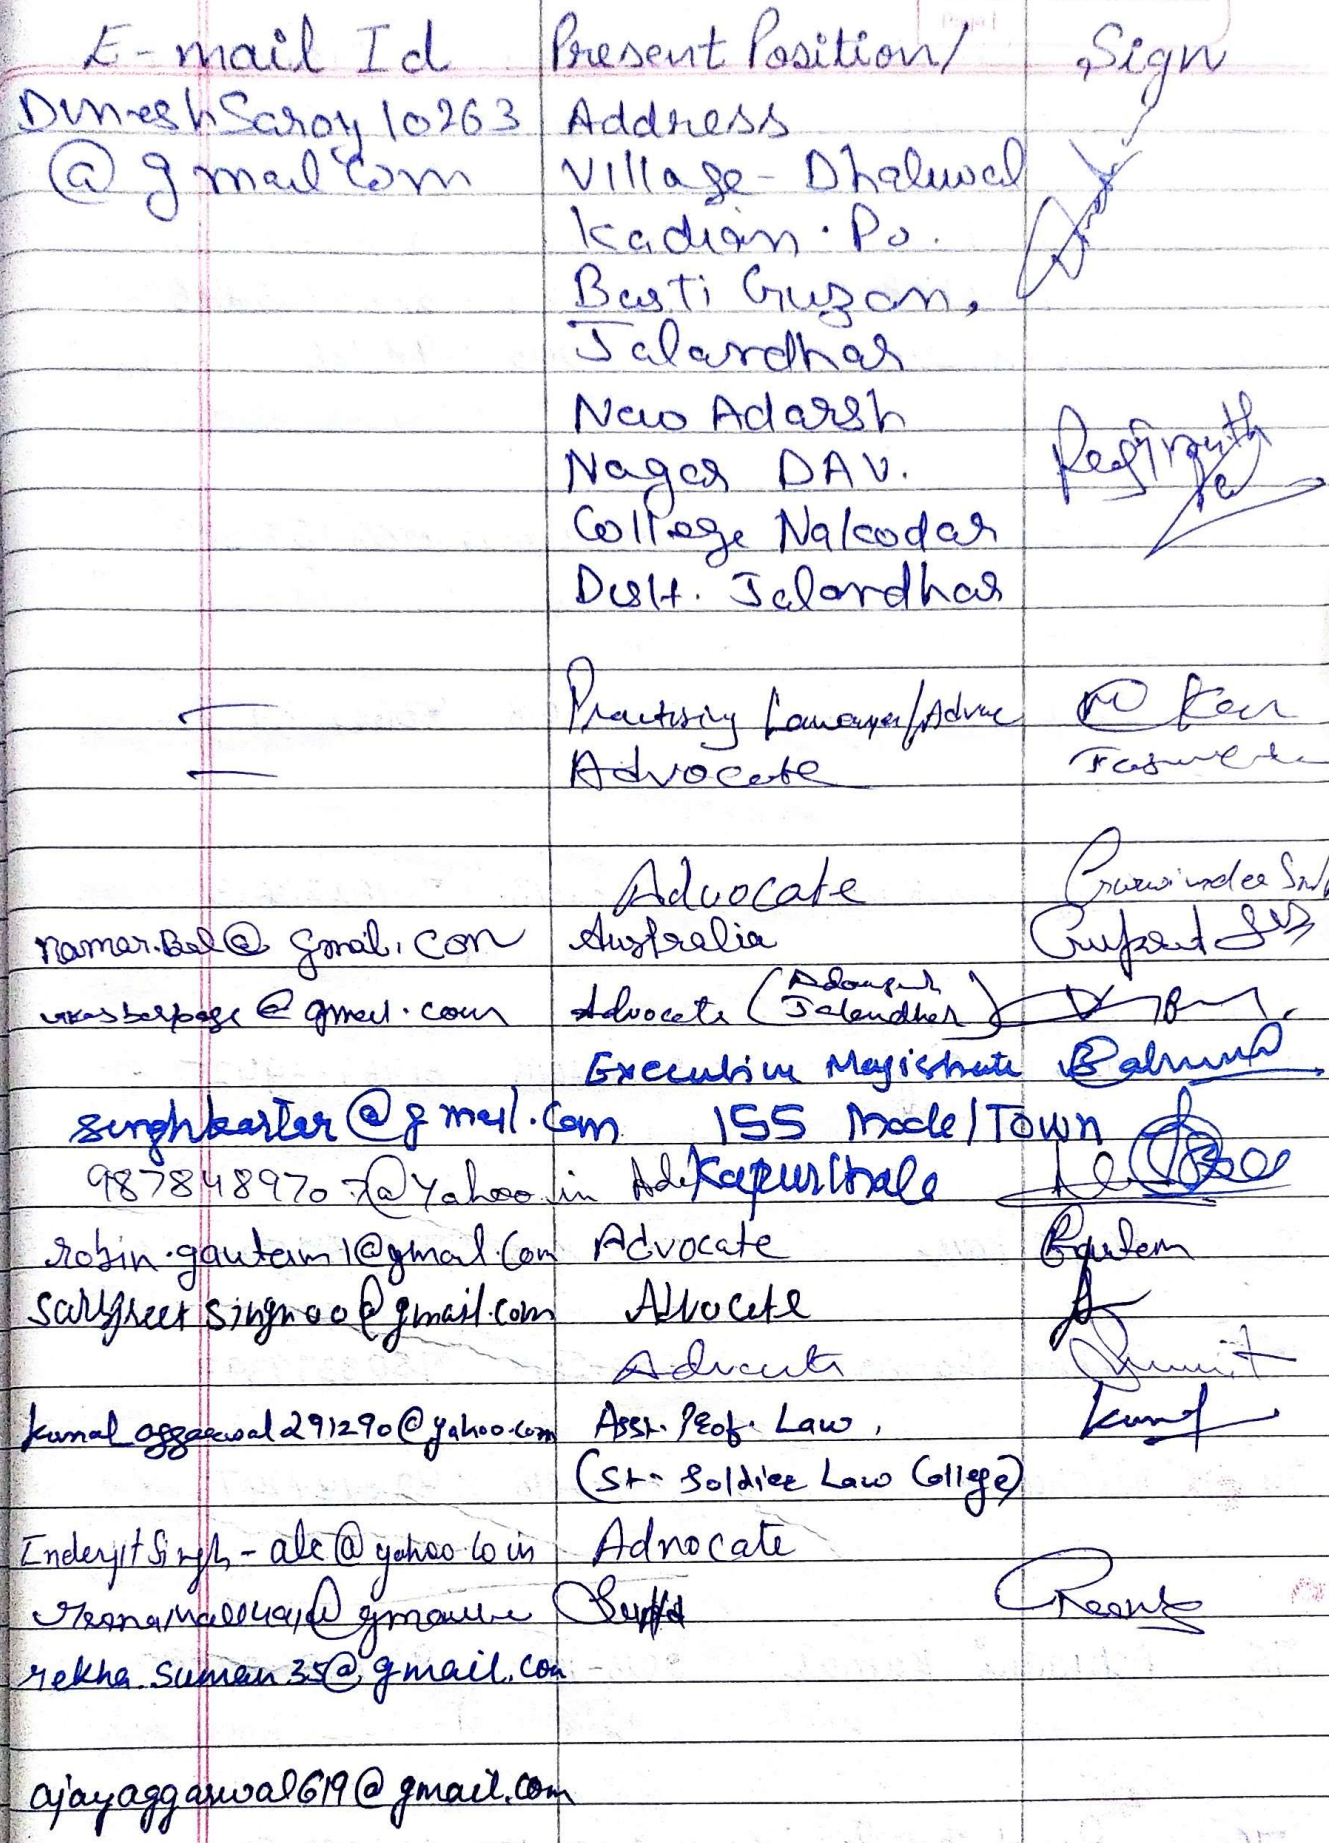 E-mail Id Present Position/ Sign
DineshSaroy10263 Address
@gmail.com Village - Dhaliwal
Kadian. Po.
Basti Guzan,
Jalandhar
New Adarsh
Nagar DAV.
College Nakodar
Distt. Jalandhar
Practising Lawyer/Advoc
Advocate
Advocate Gurwinder
namar.Bal@gmail.com Australia
@gmail.com Advocate (Jalandhar)
Executive Magistrate
singhkartar@gmail.com 155 Model Town
9878489707@Yahoo.in Kapurthala
robin.gautam1@gmail.com Advocate Gautam
@gmail.com Advocate
Advocate Sumit
kunal_aggarwal291290@yahoo.com Asst. Prof. Law, Kunal
(St. Soldier Law College)
InderjitSingh-alc@yahoo.co.in Advocate
Reena
rekha.suman35@gmail.com
ajayaggarwal619@gmail.com